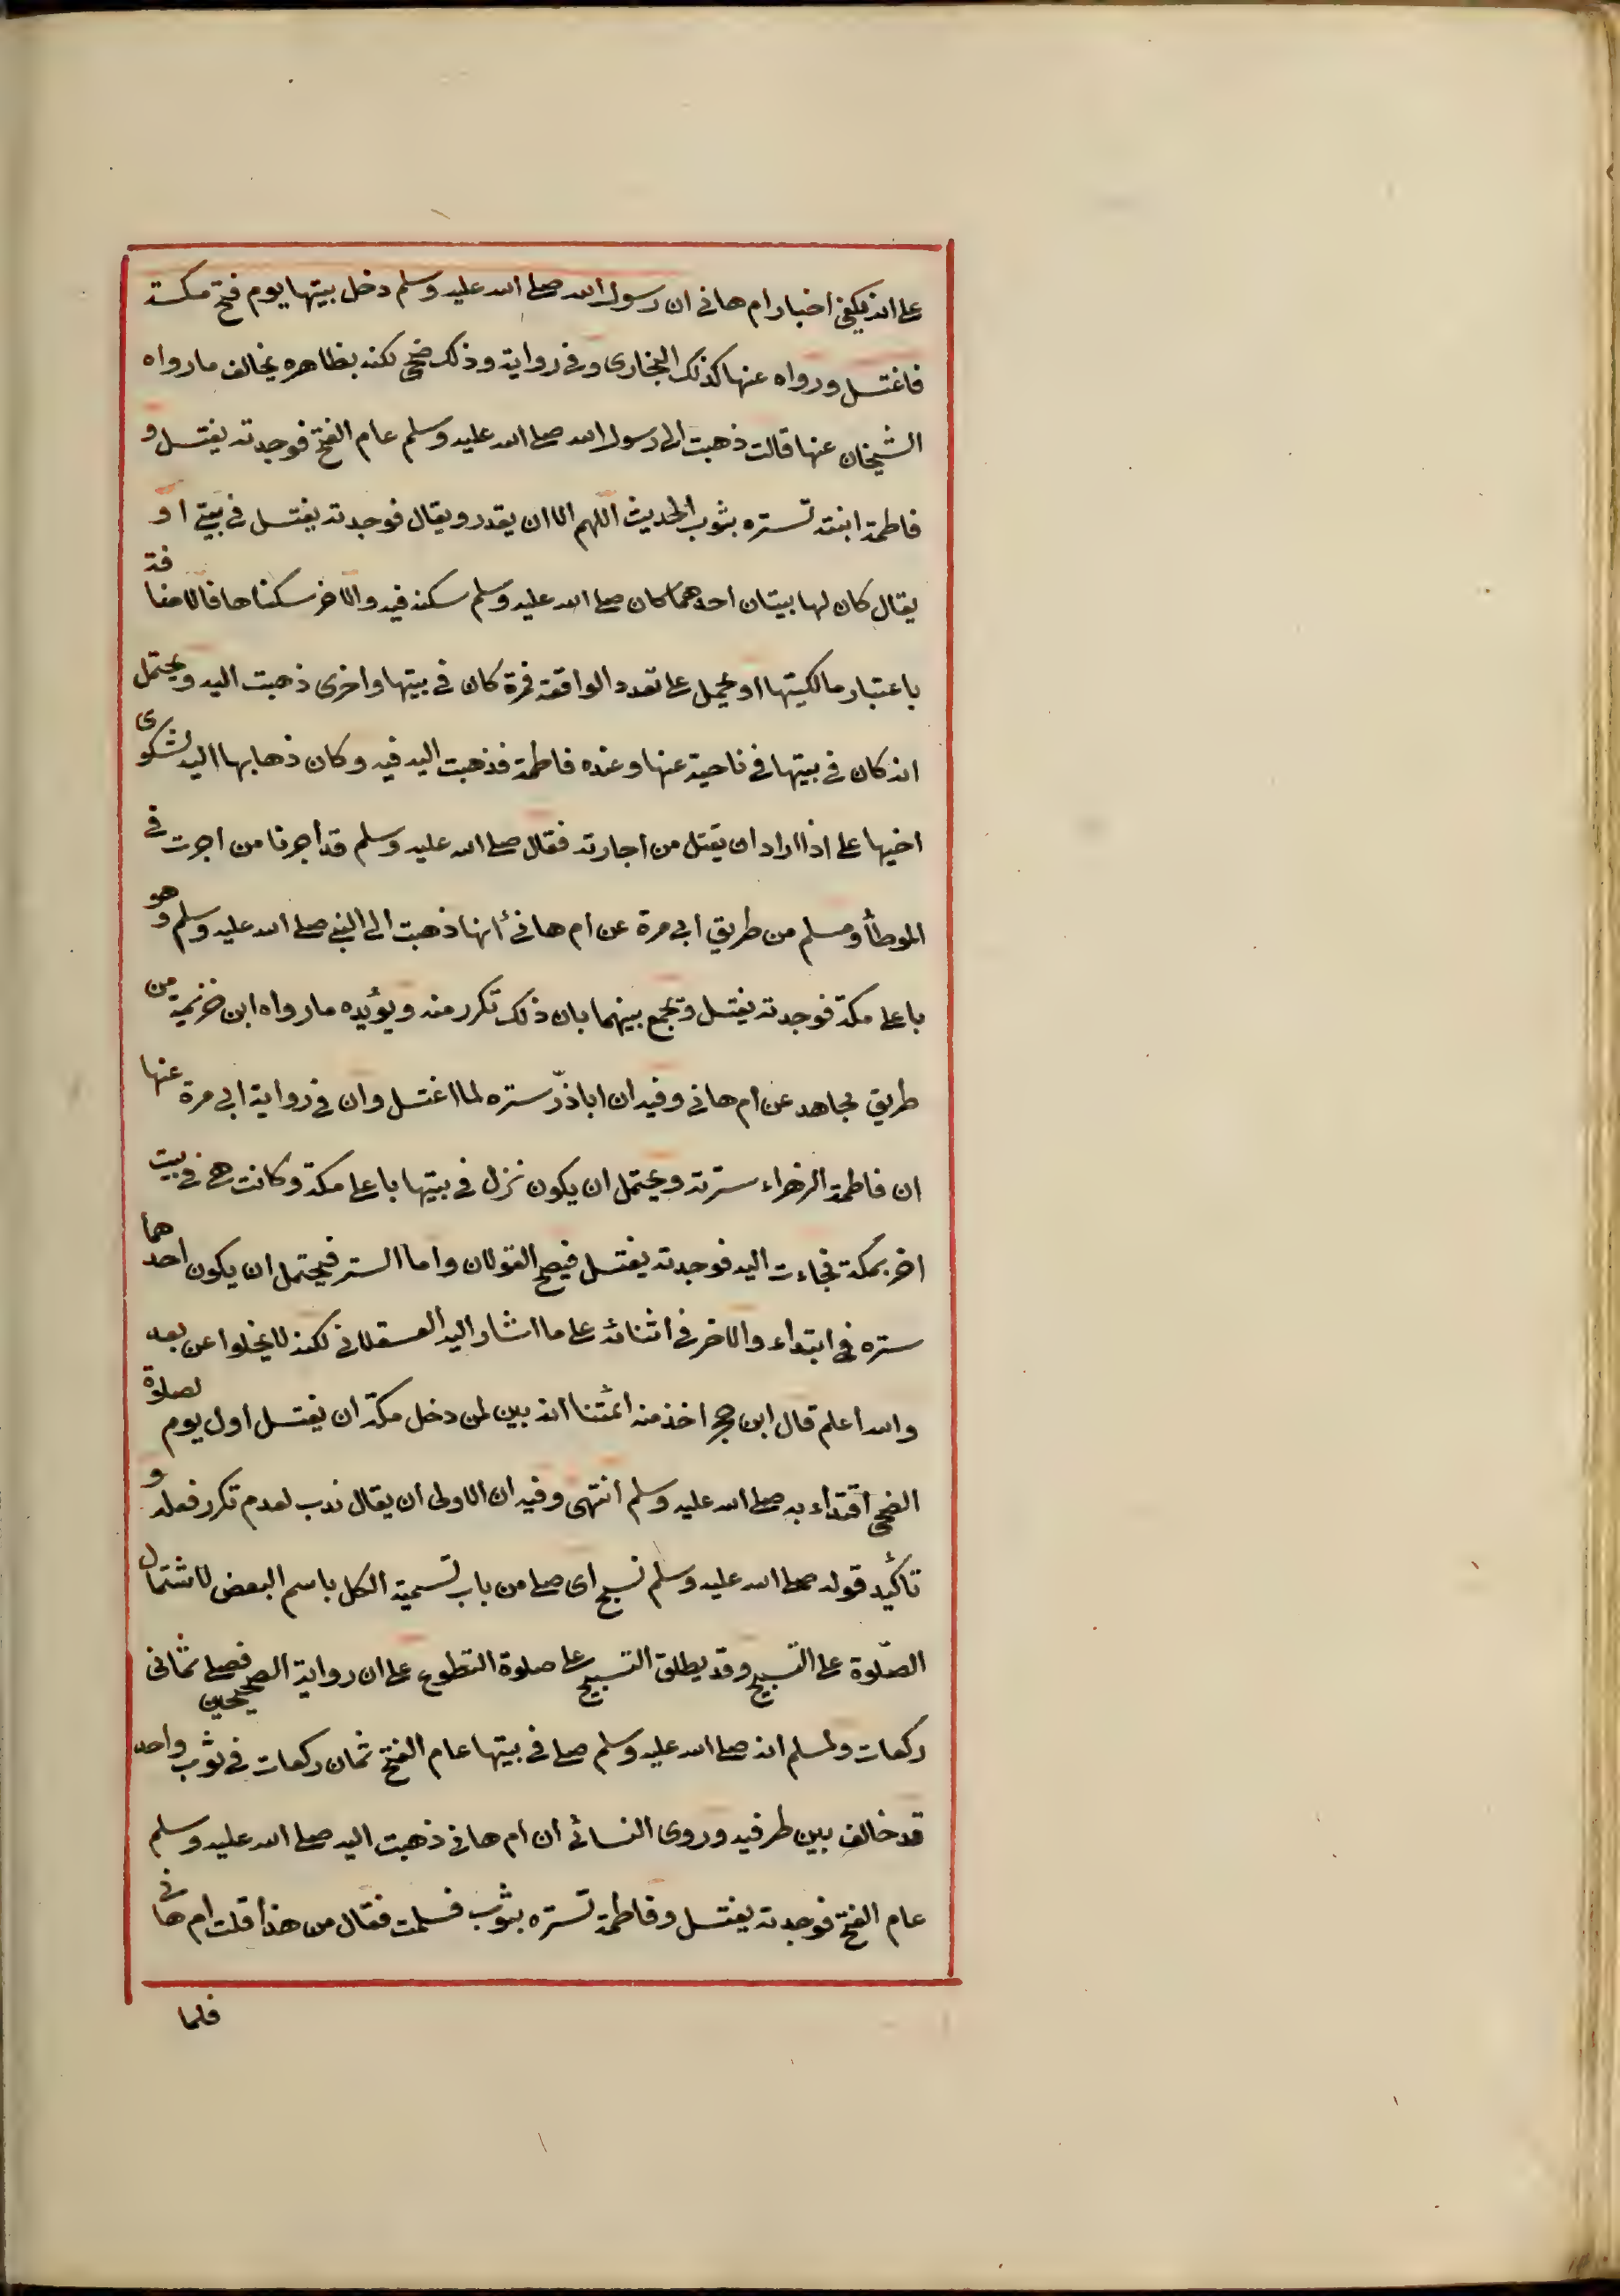 على انه يكفى اخبار ام هانى ان رسول الله صلى الله عليه وسلم دخل بيتها يوم فتح مكة
فاغتسل ورواه عنها كذلك البخارى وفى رواية وذلك ضحى لكنه بظاهره يخالف ما رواه
الشيخان عنها قالت ذهبت الى رسول الله صلى الله عليه وسلم عام الفتح فوجدته يغتسل و
فاطمة ابنته تستره بثوب الحديث اللهم الا ان يقدر ويقال فوجدته يغتسل فى بيتى او
يقال كان لها بيتان احدهما كان صلى الله عليه وسلم سكنه فيه والآخر سكناها فالاضافة
باعتبار مالكيتها او يحمل على تعدد الواقعة فمرة كان فى بيتها واخرى ذهبت اليه ويحتمل
انه كان فى بيتها فى ناحية عنها وعنده فاطمة فذهبت اليه فيه وكان ذهابها اليه لشكوى
اخيها على اذا اراد ان يقتل من اجارته فقال صلى الله عليه وسلم قد أجرنا من اجرت فى
الموطأ ومسلم من طريق ابى مرة عن ام هانئ أنها ذهبت الى النبى صلى الله عليه وسلم وهو
باعلى مكة فوجدته يغتسل وتجمع بينهما بان ذلك تكرر منه ويؤيده ما رواه ابن خزيمة من
طريق مجاهد عن ام هانى وفيه ان اباذرّ ستره لما اغتسل وان فى رواية ابى مرة عنها
ان فاطمة الزهراء سترته ويحتمل ان يكون نزل فى بيتها باعلى مكة وكانت هى فى بيت
اخر بمكة فجاءت اليه فوجدته يغتسل فيصح القولان واما الستر فيحتمل ان يكون احدهما
ستره فى ابتداء والآخر فى اثنائه على ما اشار اليه العسقلانى لكنه لا يخلوا عن بعد
والله أعلم قال ابن حجر اخذ منه ائمتنا انه بين لمن دخل مكة ان يغتسل اول يوم لصلوة
الضحى اقتداء به صلى الله عليه وسلم انتهى وفيه ان الاولى ان يقال ندب لعدم تكرر فعله و
تأكيد قوله صلى الله عليه وسلم نسبح اى صلى من باب تسمية الكل باسم البعض لاشتمال
الصّلوة على التسبيح وقد يطلق التسبيح على صلوة التطوع على ان رواية الصحيحين فصلى ثمانى
ركعات ولمسلم انه صلى الله عليه وسلم صلى فى بيتها عام الفتح ثمان ركعات فى ثوب واحد
قد خالف بين طرفيه وروى النسائى ان ام هانى ذهبت اليه صلى الله عليه وسلم
عام الفتح فوجدته يغتسل وفاطمة تستره بثوب فسلمت فقال من هذا قلت ام هانى
فلما